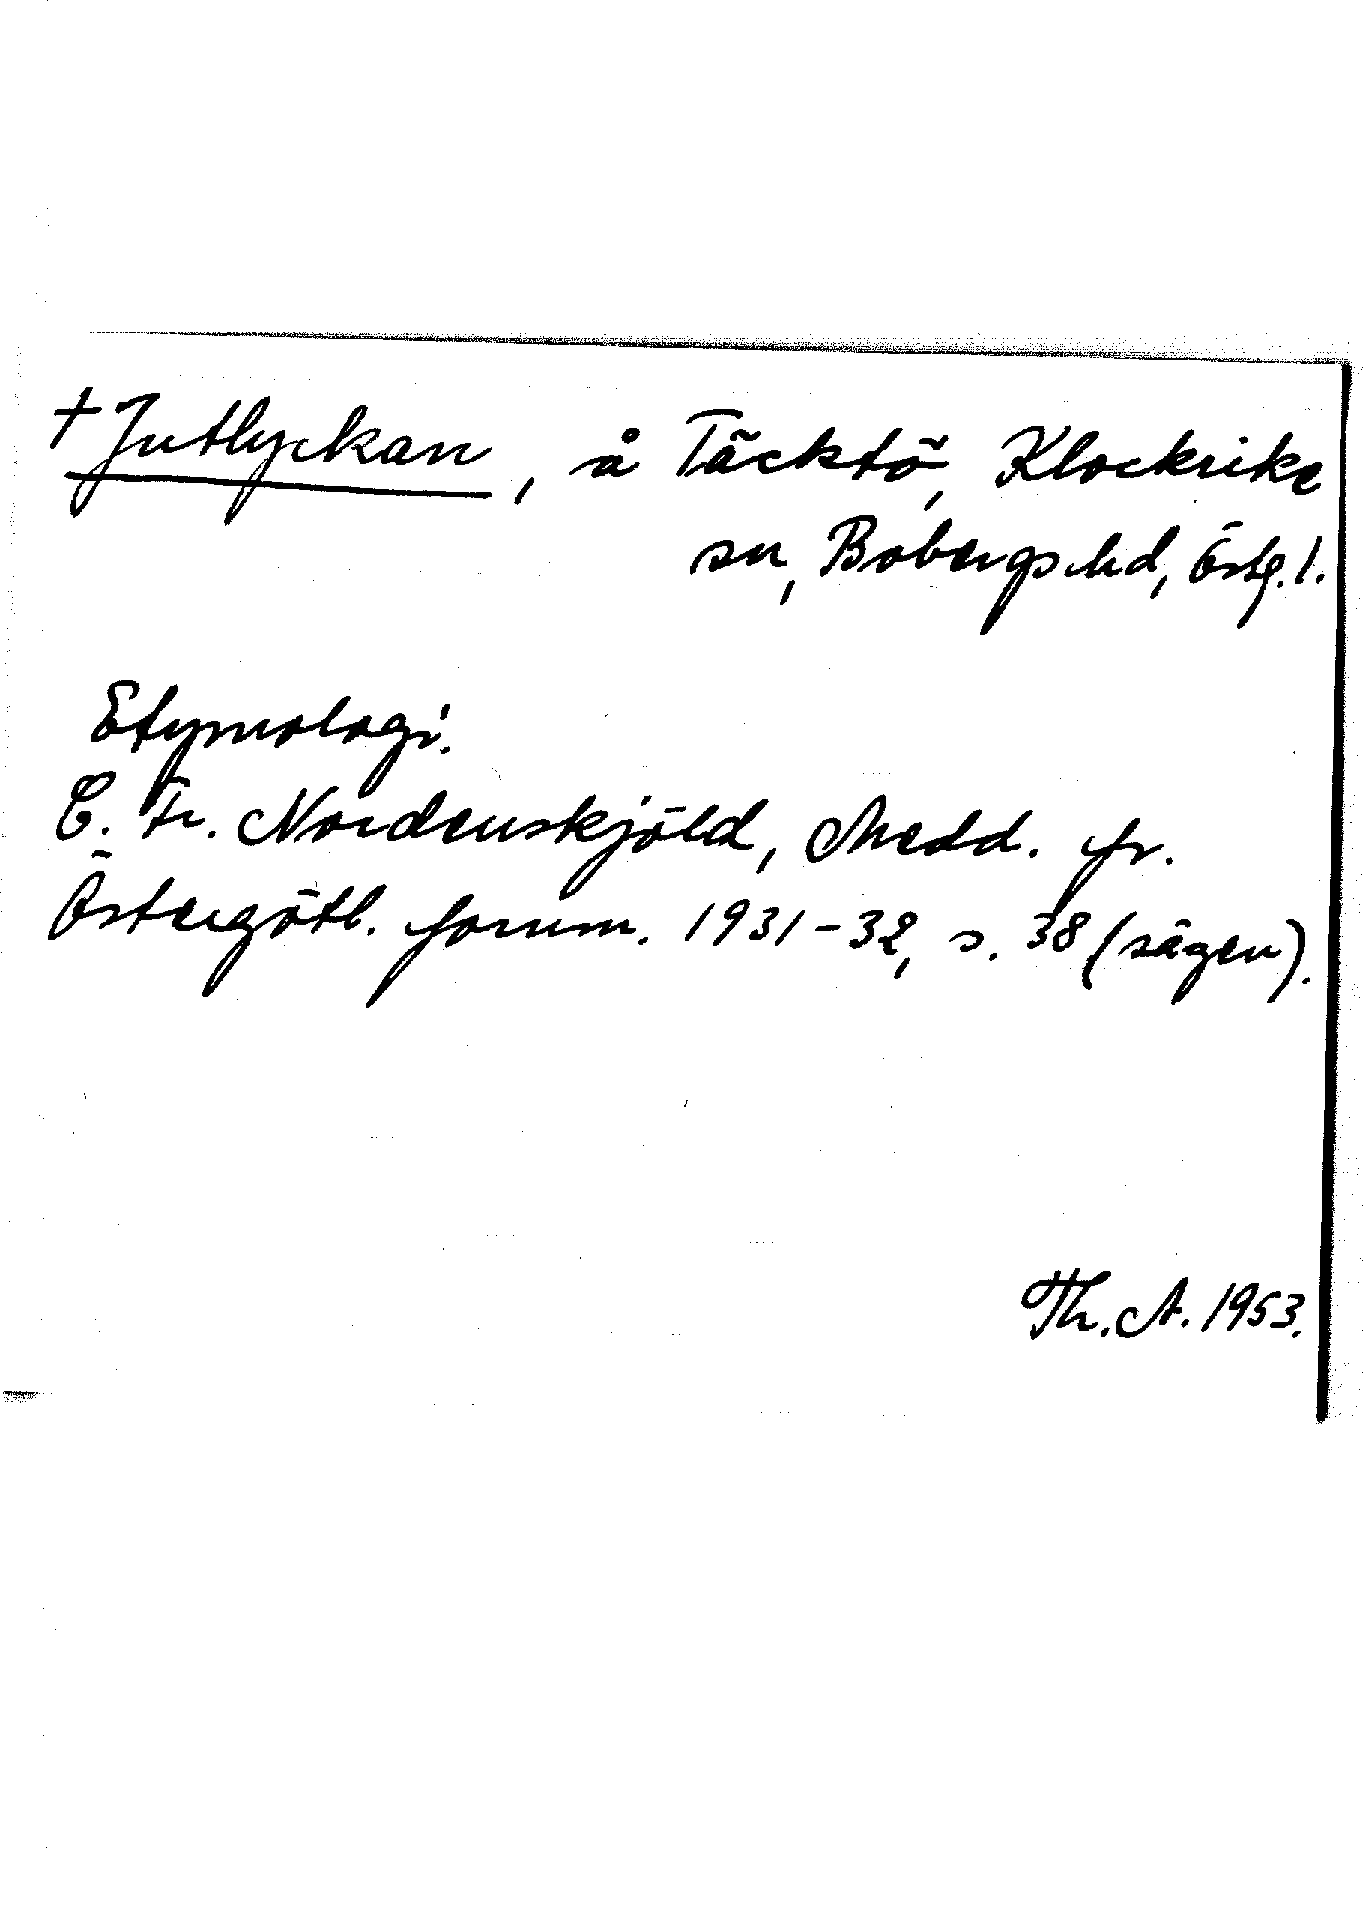 + Jutlyckan, å Täcktö, Klockrike
sn, Bobergs hd, Östg. l.
Etymologi.
C. Fr. Nordenskjöld, Medd. fr.
Östergötl. fornm. 1931-32, s. 38 (sägen).
Th. A. 1953.